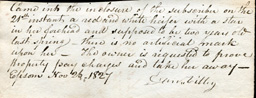 Came into the inclosure of the subscriber on the
21st instant, a red and white heifer with a star
in her forehead and supposed to be two years old
last spring – there is no artificial mark
upon her – The owner is requested to prove
property pay charges and take her away –
Nov 24, 1827